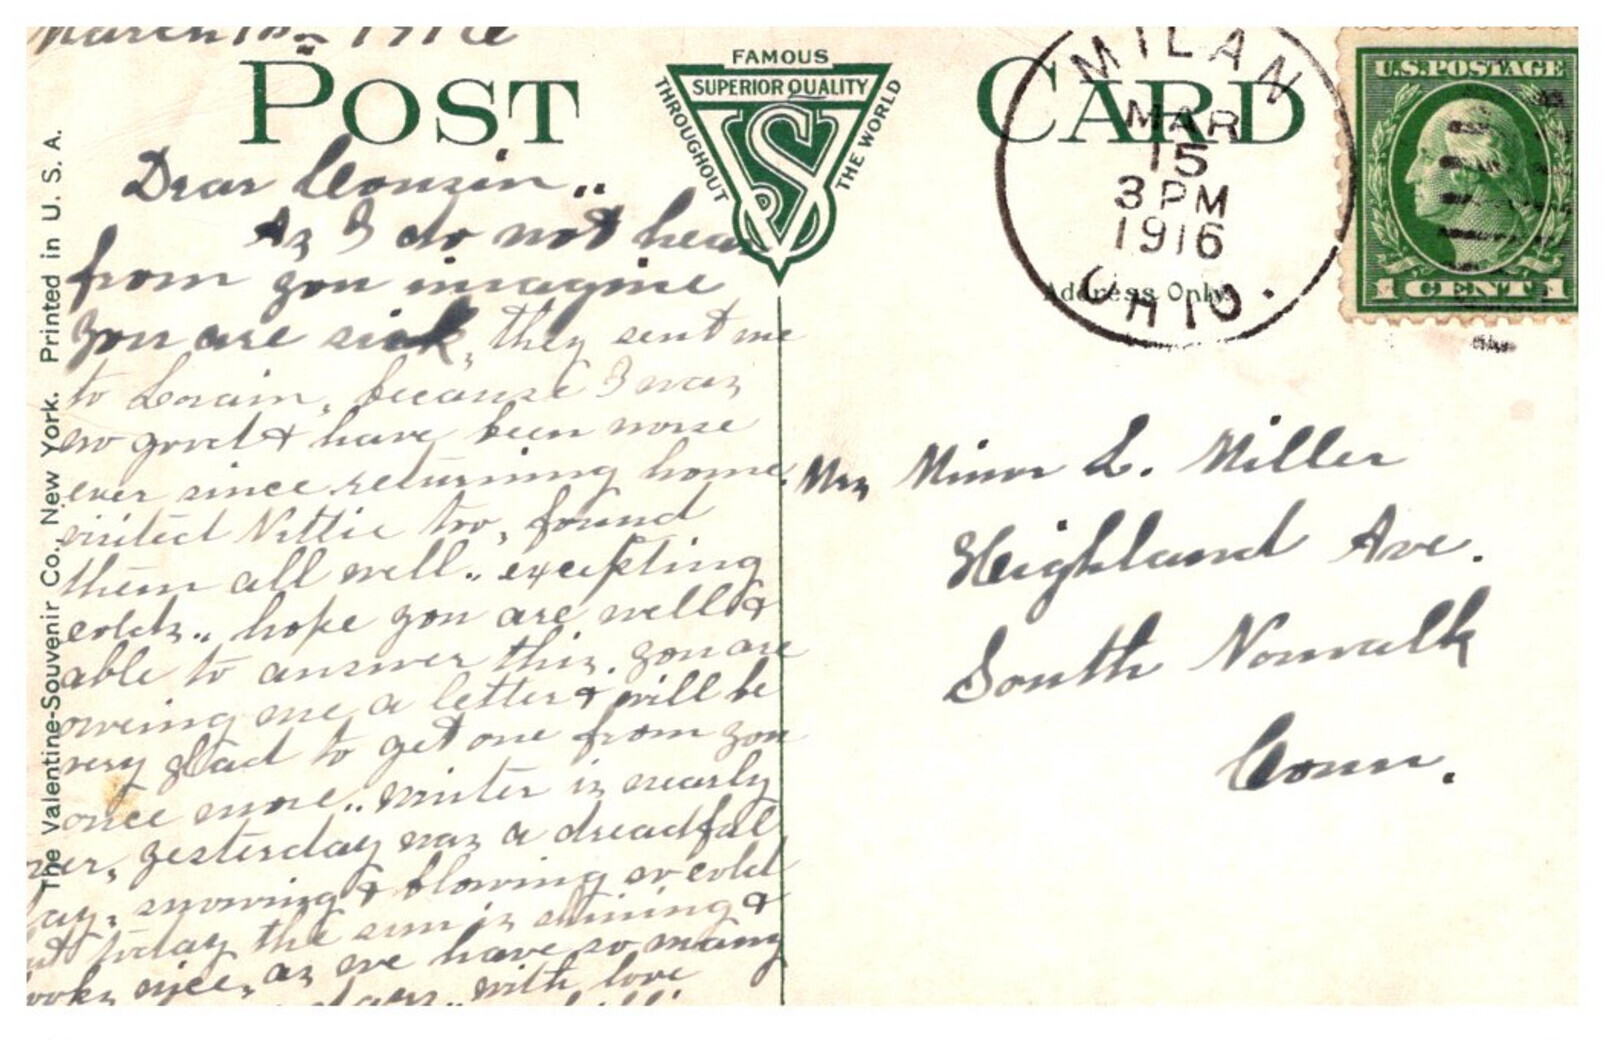 March 15" 1916
POST CARD
FAMOUS
SUPERIOR QUALITY
THROUGHOUT
THE WORLD
VS Co
MILAN
MAR
15
3 PM
1916
OHIO.
U.S. POSTAGE
1 CENT 1
Address Only.
The Valentine-Souvenir Co., New York. Printed in U. S. A.
Dear Cousin..
As I do not hear
from you imagine
you are sick, they sent me
to Lorain, because I was
so good & have been worse
ever since returning home.
visited Nettie too, found
them all well.. excepting
colds.. hope you are well &
able to answer this. you are
owing me a letter & will be
very glad to get one from you
once more.. winter is nearly
over, yesterday was a dreadful
day. snowing & blowing so cold
but today the sun is shining &
looks nice, as we have so many
days.. with love
Mrs Minor L. Miller
Highland Ave.
South Norwalk
Conn.